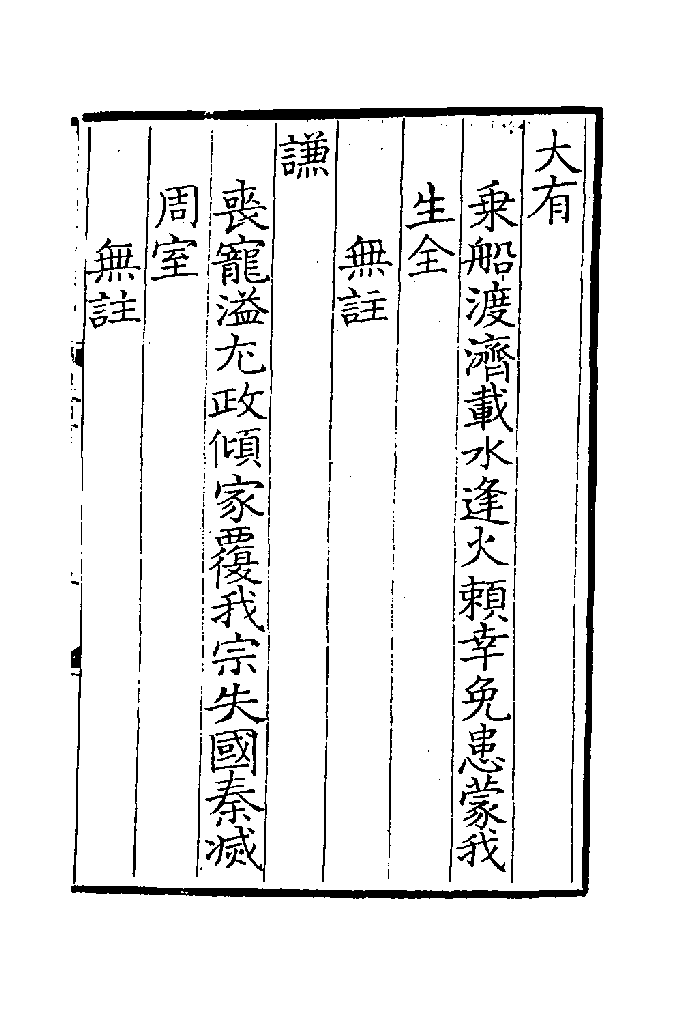 大有
乗船渡濟載水逢火賴幸免患蒙我
生全
無註
謙
喪寵溢尢政傾家覆我宗失國秦滅
周室
無註